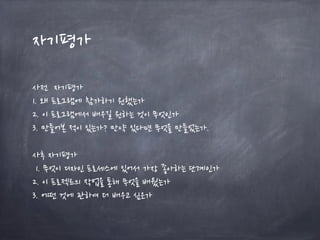 자기평가
사전 자기평가
1. 왜 프로그램에 참가하기 원했는가
2. 이 프로그램에서 배우길 원하는 것이 무엇인가
3. 만들어본 적이 있는가? 만약 있다면 무엇을 만들었는가.
사후 자기평가
1. 무엇이 디자인 프로세스에 있어서 가장 좋아하는 단계인가
2. 이 프로젝트의 작업을 통해 무엇을 배웠는가
3. 어떤 것에 관하여 더 배우고 싶은가